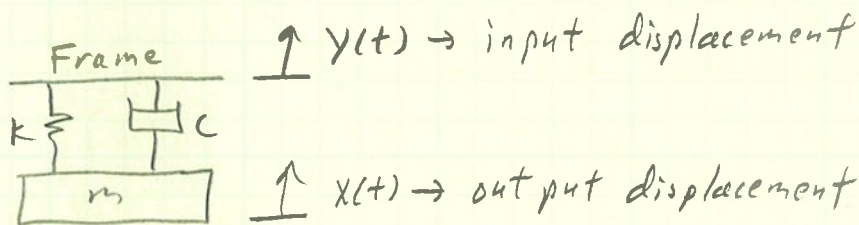 Frame
y(t) → input displacement
K
C
m
x(t) → output displacement